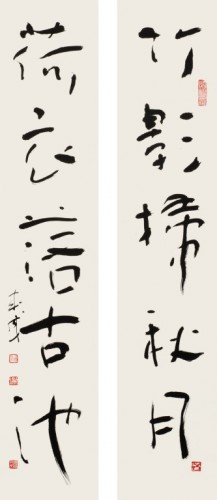 竹影掃秋月
荷衣落古池